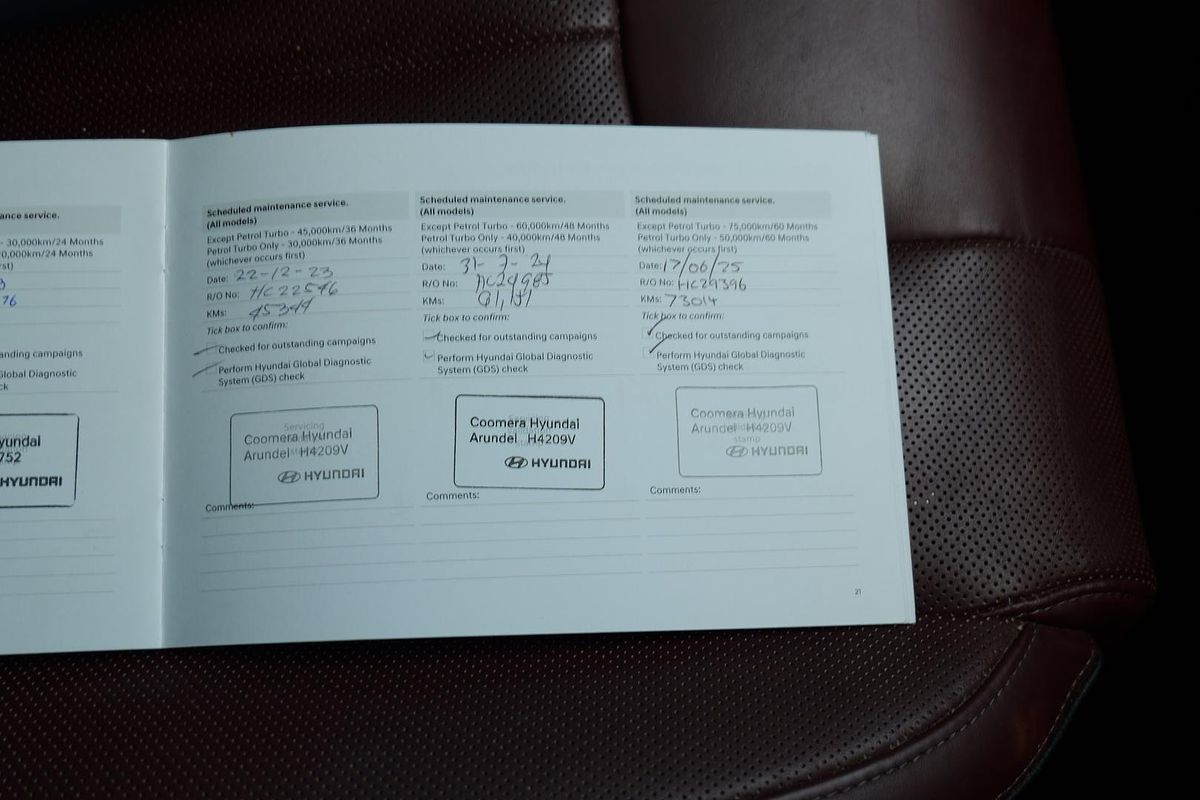 ance service.
- 30,000km/24 Months
0,000km/24 Months
rst)
76
anding campaigns
Global Diagnostic
ck
yundai
752
HYUNDAI
Scheduled maintenance service.
(All models)
Except Petrol Turbo - 45,000km/36 Months
Petrol Turbo Only - 30,000km/36 Months
(whichever occurs first)
Date: 22-12-23
R/O No: HC22546
KMs: 45349
Tick box to confirm:
Checked for outstanding campaigns
Perform Hyundai Global Diagnostic
System (GDS) check
Servicing
Coomera Hyundai
Arundel H4209V
HYUNDAI
Comments:
Scheduled maintenance service.
(All models)
Except Petrol Turbo - 60,000km/48 Months
Petrol Turbo Only - 40,000km/48 Months
(whichever occurs first)
Date:
R/O No:
KMs:
Tick box to confirm:
Checked for outstanding campaigns
Perform Hyundai Global Diagnostic
System (GDS) check
Servicing
Coomera Hyundai
Arundel H4209V
HYUNDAI
Comments:
Scheduled maintenance service.
(All models)
Except Petrol Turbo - 75,000km/60 Months
Petrol Turbo Only - 50,000km/60 Months
(whichever occurs first)
Date: 17/06/25
R/O No: HC29396
KMs: 73014
Tick box to confirm:
Checked for outstanding campaigns
Perform Hyundai Global Diagnostic
System (GDS) check
Coomera Hyundai
Arundel H4209V
stamp
HYUNDAI
Comments:
21